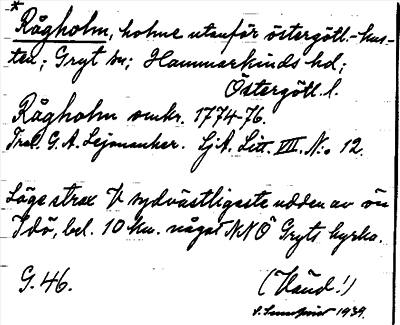 * Rågholm, holme utanför östergötl.-kus-
ten; Gryt sn; Hammarkinds hd;
Östergötl. l.
Rågholm omkr. 1774-76.
Trol. G. A. Lejonanker. SjA. Litt. VII. No. 12.
Lågs strax V sydvästligaste udden av ön
Idö, bel. 10 km. något NNÖ Gryts kyrka.
G. 46. (Vänd!)
1939.